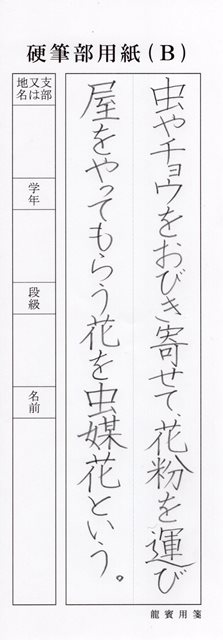 硬筆部用紙(B)
虫やチョウをおびき寄せて、花粉を運び
屋をやってもらう花を虫媒花という。
支部又は地名
学年
段級
名前
龍賓用箋